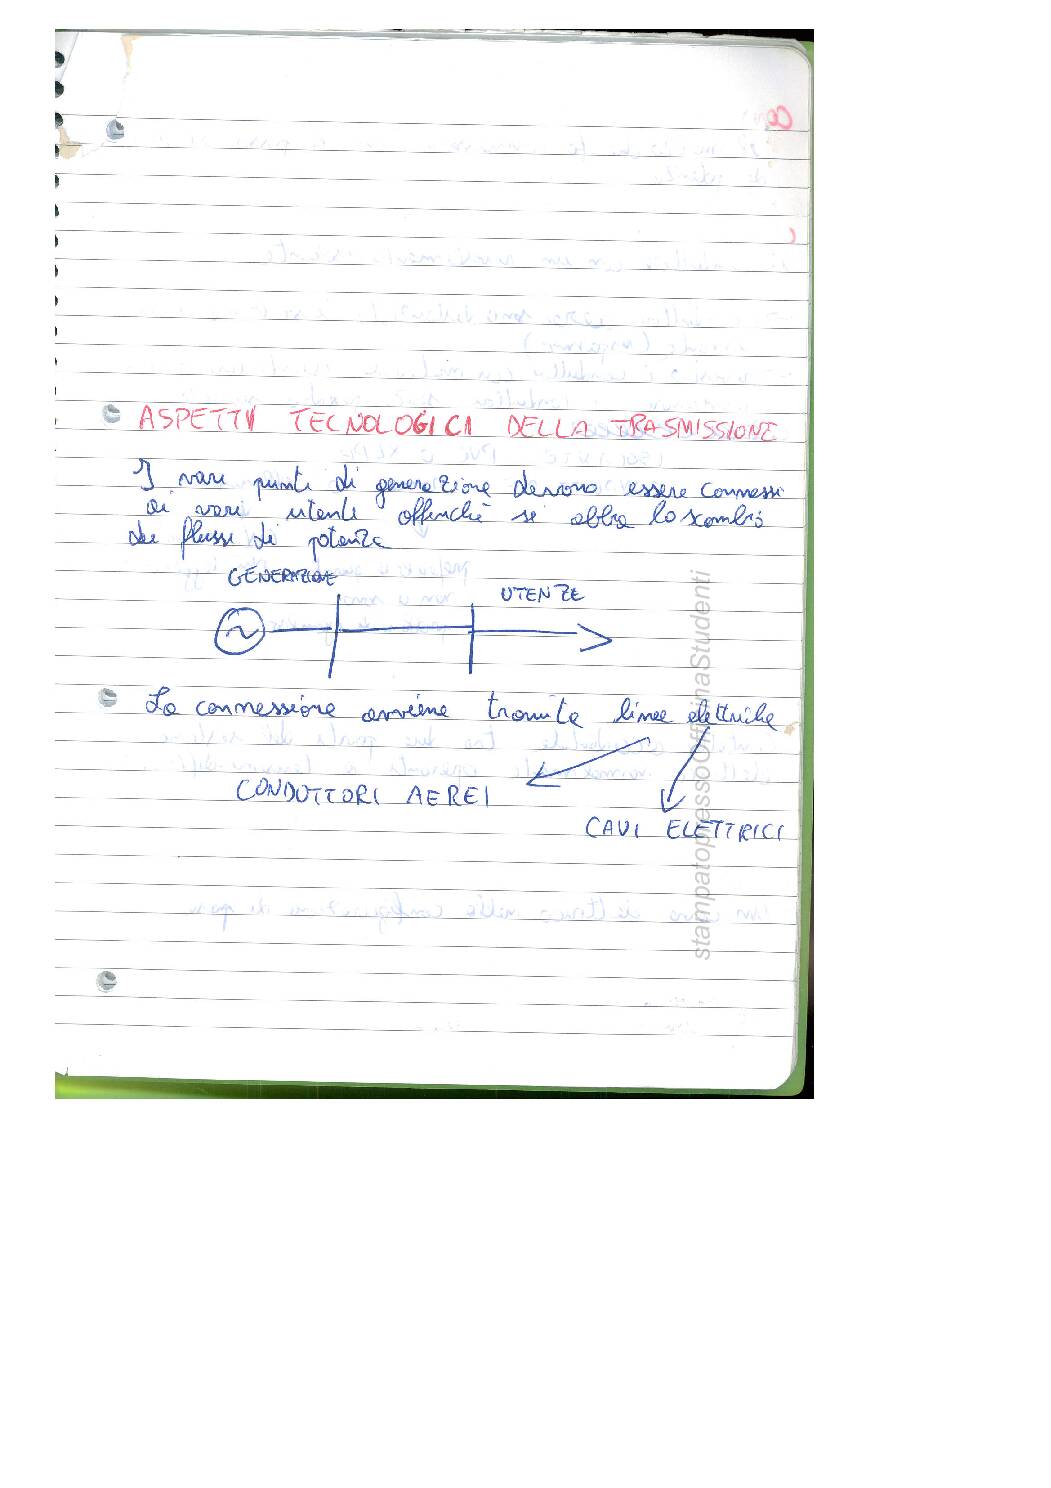 ASPETTI TECNOLOGICI DELLA TRASMISSIONE
I vari punti di generazione devono essere connessi
ai vari utenti affinchè si abbia lo scambio
dei flussi di potenza
GENERAZIONE
UTENZE
La connessione avviene tramite linee elettriche
CONDUTTORI AEREI
CAVI ELETTRICI
stampatopressoOfficinaStudenti